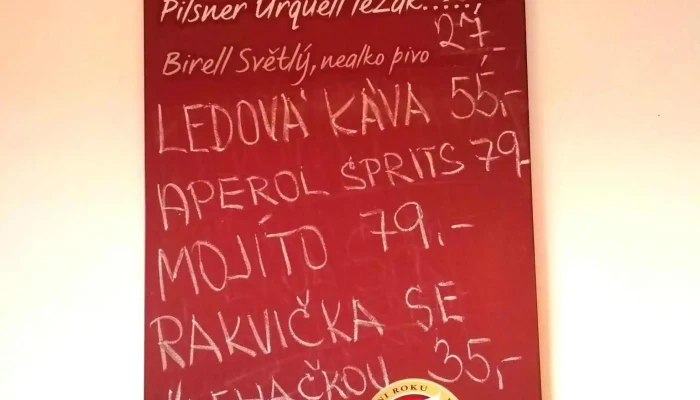 Pilsner Urquell ležák.....,
Birell Světlý, nealko pivo 27,-
LEDOVÁ KÁVA 55,-
APEROL ŠPRITS 79,-
MOJÍTO 79,-
RAKVIČKA SE
ŠLEHAČKOU 35,-
NÍ ROKU